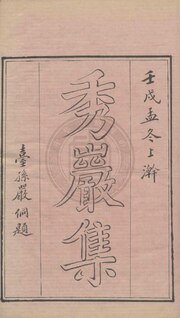 壬戌孟冬上澣
秀巖集
臺孫嚴侗題